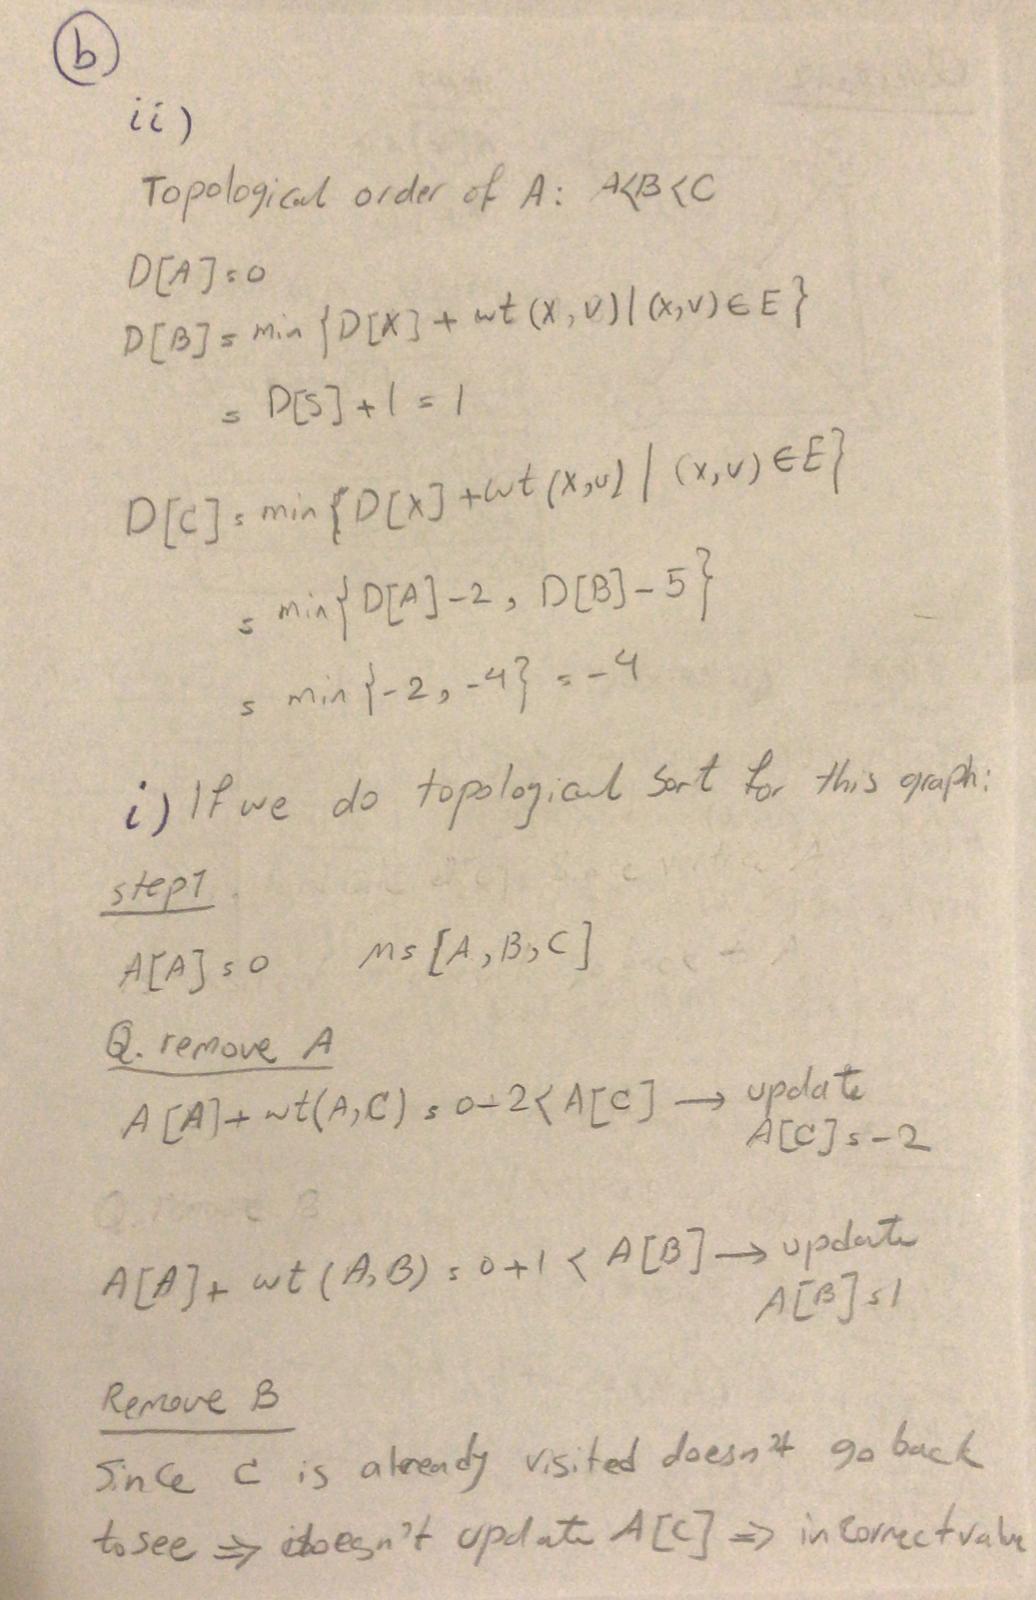 b
ii)
Topological order of A: A<B<C
D[A]=0
D[B]= min {D[X] + wt(x,v) | (x,v) ∈ E}
= D[S]+1=1
D[C]= min{D[X]+wt(x,v) | (x,v) ∈ E}
= min{D[A]-2, D[B]-5}
= min{-2,-4} = -4
i) If we do topological Sort for this graph:
step1
A[A]=0 M=[A,B,C]
Q. remove A
A[A]+wt(A,C) = 0-2< A[C] → update
A[C]=-2
Q. remove B
A[A]+ wt(A,B) = 0+1 < A[B] → update
A[B]=1
Remove B
Since C is already visited doesn't go back
to see ⇒ doesn't update A[C] ⇒ incorrect value